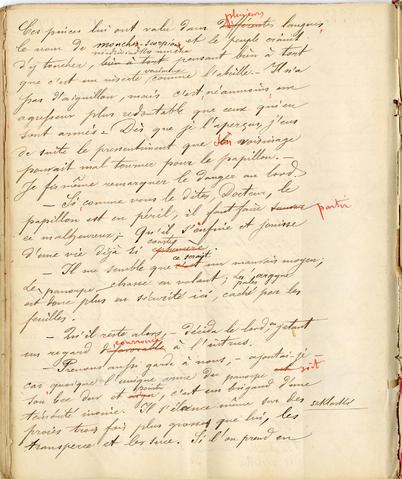 plusieurs
Ces pinces lui ont valu dans différentes langues
le nom de mouche-scorpion et le peuple craint
d'y toucher, bien à tort pensant bien à tort
que c'est un insecte comme l'abeille. Il n'a
pas d'aiguillon, mais c'est néanmoins un
agresseur plus redoutable que ceux qui en
sont armés. Dès que je l'aperçus, j'eus
de suite le pressentiment que son voisinage
pourrait mal tourner pour le papillon.—
Je fis même remarquer le danger au lord.
— Si comme vous le dites, Docteur, le
papillon est en péril, il faut faire partir
ce malheureux; Qu'il s'enfuie et jouisse
d'une vie déjà si courte éphémère
ce serait
— Il me semble que c'est un mauvais moyen;
Le panorpe chasse en volant; Le argyne
est donc plus en sécurité ici, caché par les
feuilles.
— Qu'il reste alors, — décida le lord en jetant
un regard courroucé défavorable à l'intrus.
— Prenons aussi garde à nous, — ajoutai-je
car quoique l'unique arme du panorpe soit
son bec dur et, c'est un brigand d'une
témérité inouïe. Il s'élance même sur des
proies trois fois plus grosses que lui, les
transperce et les suce. Si l'on prend en